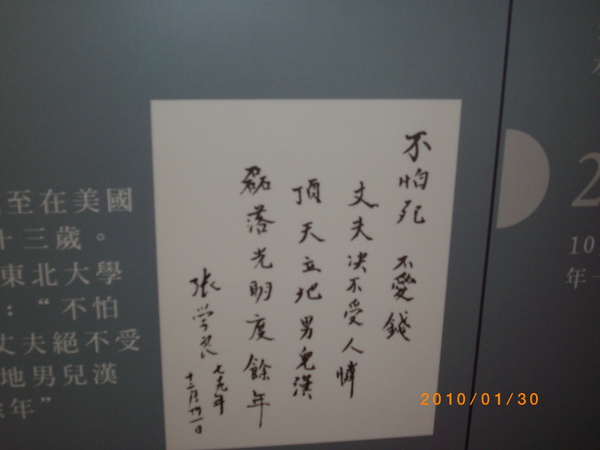 不怕死 不愛錢
丈夫决不受人憐
頂天立地男兒漢
磊落光明度餘年
張學良 七九年
十二月卅一日
至在美國
十三歲。
東北大學
：“不怕
丈夫絕不受
地男兒漢
年”
2
10
年
2010/01/30